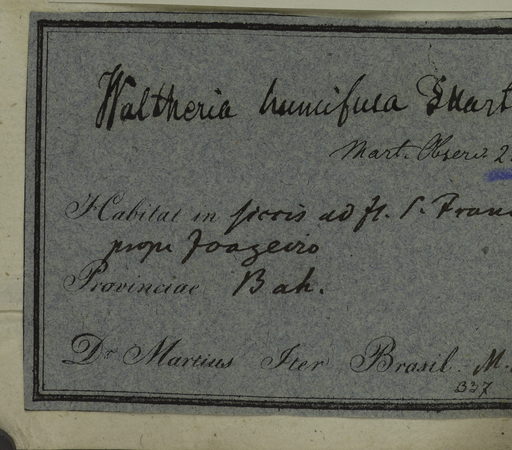 Waltheria humifusa Mart
Mart. Observ. 2
Habitat in siccis ad fl. S. Fran
prope Joazeiro
Provinciae Bah.
Dr Martius Iter Brasil. M.
337